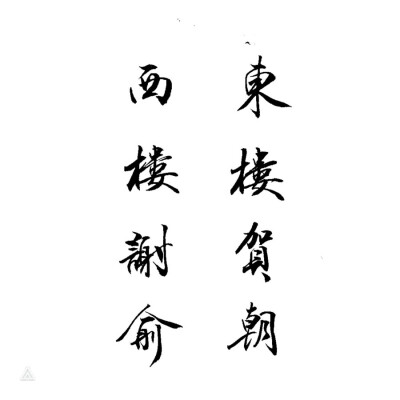 東樓賀朝
西樓謝俞